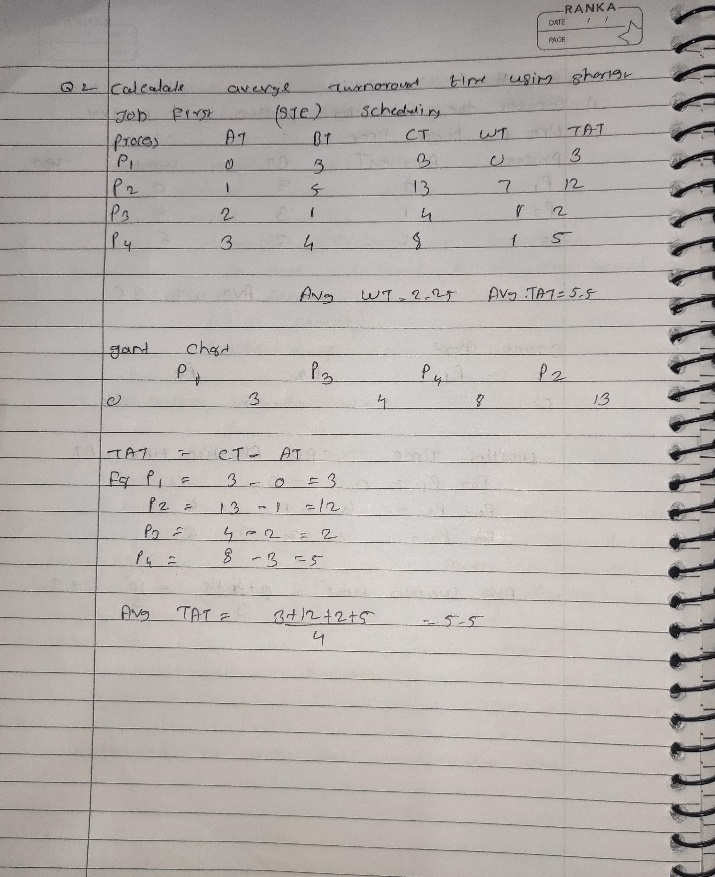 RANKA
DATE / /
PAGE
Q2 Calculate averge turnoround time using shortest
Job First (SJF) Scheduling
Process AT BT CT WT TAT
P1 0 3 3 0 3
P2 1 5 13 7 12
P3 2 1 4 1 2
P4 3 4 8 1 5
Avg WT = 2.25 Avg TAT = 5.5
gant Chart
P1 P3 P4 P2
0 3 4 8 13
TAT = CT - AT
P1 = 3 - 0 = 3
P2 = 13 - 1 = 12
P3 = 4 - 2 = 2
P4 = 8 - 3 = 5
Avg TAT = 3+12+2+5 = 5.5
4